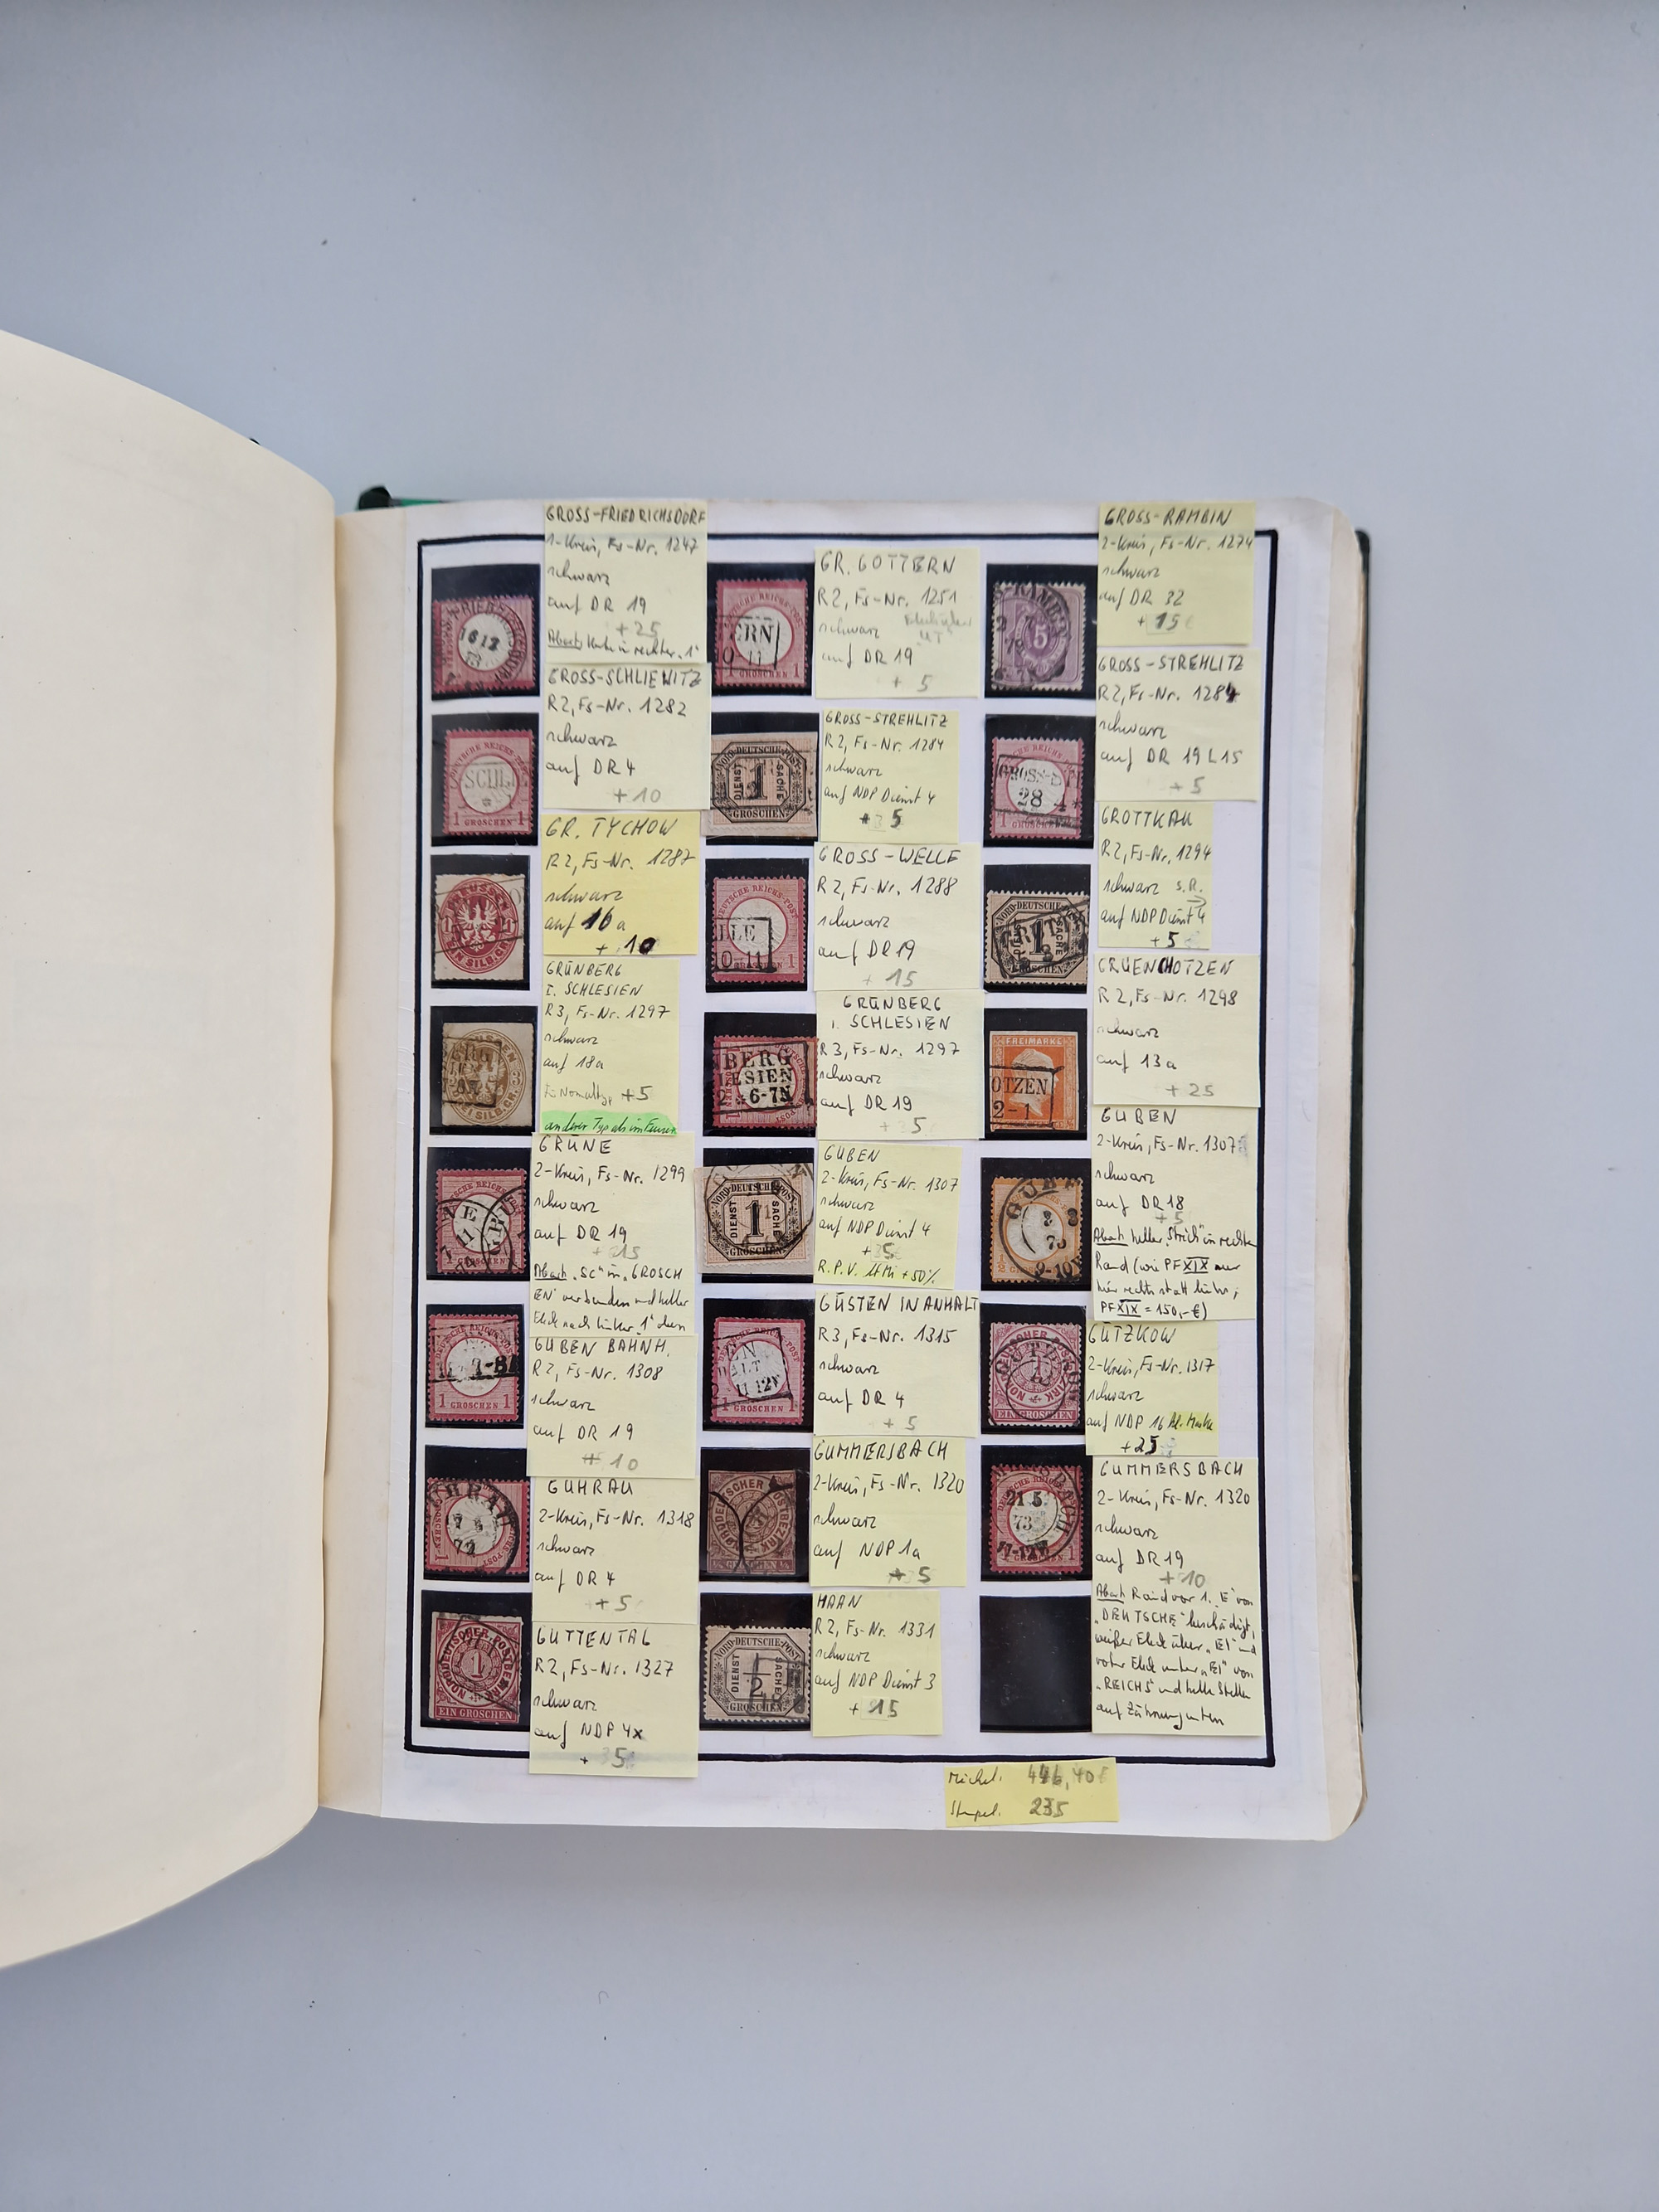 GROSS-FRIEDRICHSDORF
1-Kreis, Fs-Nr. 1247
schwarz
auf DR 19
+25
Abart: in rechter "1"
GR. GOTTERN
R2, Fs-Nr. 1251
schwarz
auf DR 19
+ 5
GROSS-RAMBIN
2-Kreis, Fs-Nr. 1274
schwarz
auf DR 32
+ 15€
16 12
ERN
GROSCHEN
GROSS-SCHLIEWITZ
R2, Fs-Nr. 1282
schwarz
auf DR 4
+10
GROSS-STREHLITZ
R2, Fs-Nr. 1284
schwarz
auf NDP Dienst 4
+ 5
GROSS-STREHLITZ
R2, Fs-Nr. 1284
schwarz
auf DR 19 L15
+ 5
SCHLI
1 GROSCHEN 1
NORD-DEUTSCHE-POST
DIENST 1 SACHE
GROSCHEN
GROSS-ST
28 4
GR. TYCHOW
R2, Fs-Nr. 1287
schwarz
auf 16a
+ 10
GROSS-WELLE
R2, Fs-Nr. 1288
schwarz
auf DR 19
+ 15
GROTTKAU
R2, Fs-Nr. 1294
schwarz s.R.
auf NDP Dienst 4
+5
LLE
GRÜNBERG
I. SCHLESIEN
R3, Fs-Nr. 1297
schwarz
auf 18a
+5
anderer Typ als im Feuser
GRÜNBERG
I. SCHLESIEN
R3, Fs-Nr. 1297
schwarz
auf DR 19
+ 5
GRUENCHOTZEN
R2, Fs-Nr. 1298
schwarz
auf 13a
+ 25
BERG
ESIEN
6-7N
FREIMARKE
OTZEN
2-1
GRÜNE
2-Kreis, Fs-Nr. 1299
schwarz
auf DR 19
+ 15
Abart "SC" in "GROSCH
EN" verbunden und heller
Fleck nach linker "1" oben
GUBEN
2-Kreis, Fs-Nr. 1307
schwarz
auf NDP Dienst 4
+ 5
R.P.V. lt Mi +50%
GUBEN
2-Kreis, Fs-Nr. 1307
schwarz
auf DR 18
+5
Abart heller "Strich" in rechten
Rand (wie PF XIX nur
hier rechts statt links;
PF XIX = 150,-€)
NORD-DEUTSCHE-POST
DIENST 1 SACHE
GROSCHEN
GUBEN BAHNH.
R2, Fs-Nr. 1308
schwarz
auf DR 19
+ 10
GÜSTEN IN ANHALT
R3, Fs-Nr. 1315
schwarz
auf DR 4
+ 5
GÜTZKOW
2-Kreis, Fs-Nr. 1317
schwarz
auf NDP 16 kl. Marke
+25
1 GROSCHEN 1
EIN GROSCHEN
GUHRAU
2-Kreis, Fs-Nr. 1318
schwarz
auf DR 4
+ 5
GUMMERSBACH
2-Kreis, Fs-Nr. 1320
schwarz
auf NDP 1a
+ 5
GUMMERSBACH
2-Kreis, Fs-Nr. 1320
schwarz
auf DR 19
+ 10
Abart Rand vor 1. "E" von
"DEUTSCHE" beschädigt,
weißer Fleck über "EI" und
roter Fleck unter "EI" von
"REICHS" und helle Stellen
auf Zähnung unten
21 5
73
11-12V
GUTTENTAG
R2, Fs-Nr. 1327
schwarz
auf NDP 4x
+ 5
HAAN
R2, Fs-Nr. 1331
schwarz
auf NDP Dienst 3
+ 15
NORDDEUTSCHER POSTBEZIRK
1
EIN GROSCHEN
NORD-DEUTSCHE-POST
DIENST 1/2 SACHE
GROSCHEN
Michel: 446,40€
Stempel: 235